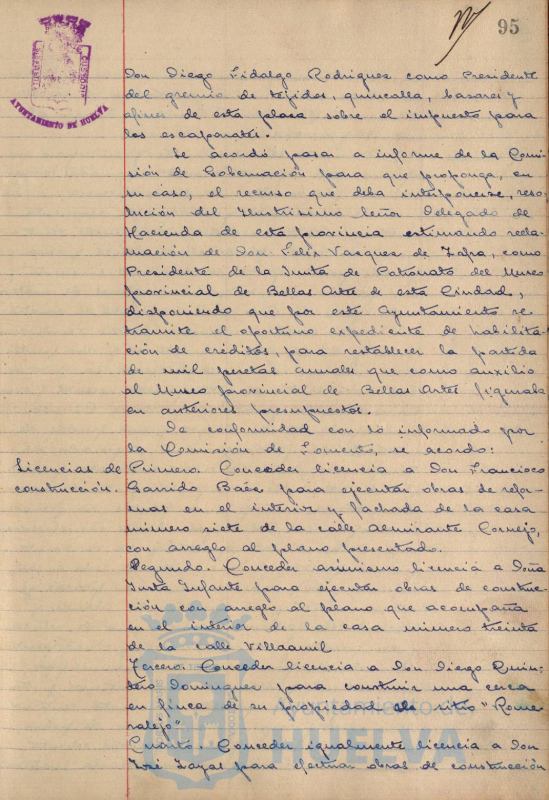 95
AYUNTAMIENTO DE HUELVA
Don Diego Fidalgo Rodriguez como Presidente
del gremio de tejidos, quincalla, bazares y
afines de esta plaza sobre el impuesto para
los escaparates.
Se acordó pasar a informe de la Comi-
sión de Gobernación para que proponga, en
su caso, el recurso que deba interponerse, reso-
lución del Ilustrisimo Señor Delegado de
Hacienda de esta provincia estimando recla-
mación de Don Felix Vazquez de Zafra, como
Presidente de la Junta de Patronato del Museo
provincial de Bellas Artes de esta Ciudad,
disponiendo que por este Ayuntamiento se
tramite el oportuno expediente de habilita-
ción de créditos, para restablecer la partida
de mil pesetas anuales que como auxilio
al Museo provincial de Bellas Artes figuraba
en anteriores presupuestos.
De conformidad con lo informado por
la Comisión de Fomento, se acordo:
Licencias de
construcción.
Primero. Conceder licencia a Don Francisco
Garrido Baéz para ejecutar obras de refor-
mas en el interior y fachada de la casa
número siete de la calle Almirante Cornejo,
con arreglo al plano presentado.
Segundo. Conceder asimismo licencia a Doña
Justa Infante para ejecutar obras de construc-
ción con arreglo al plano que acompaña
en el interior de la casa número treinta
de la calle Villaamil
Tercero. Conceder licencia a Don Diego Quin-
tero Dominguez para construir una cerca
en finca de su propiedad al sitio "Rome-
ralejo"
Cuarto. Conceder igualmente licencia a Don
José Zayas para efectuar obras de construcción
Ayuntamiento de
HUELVA